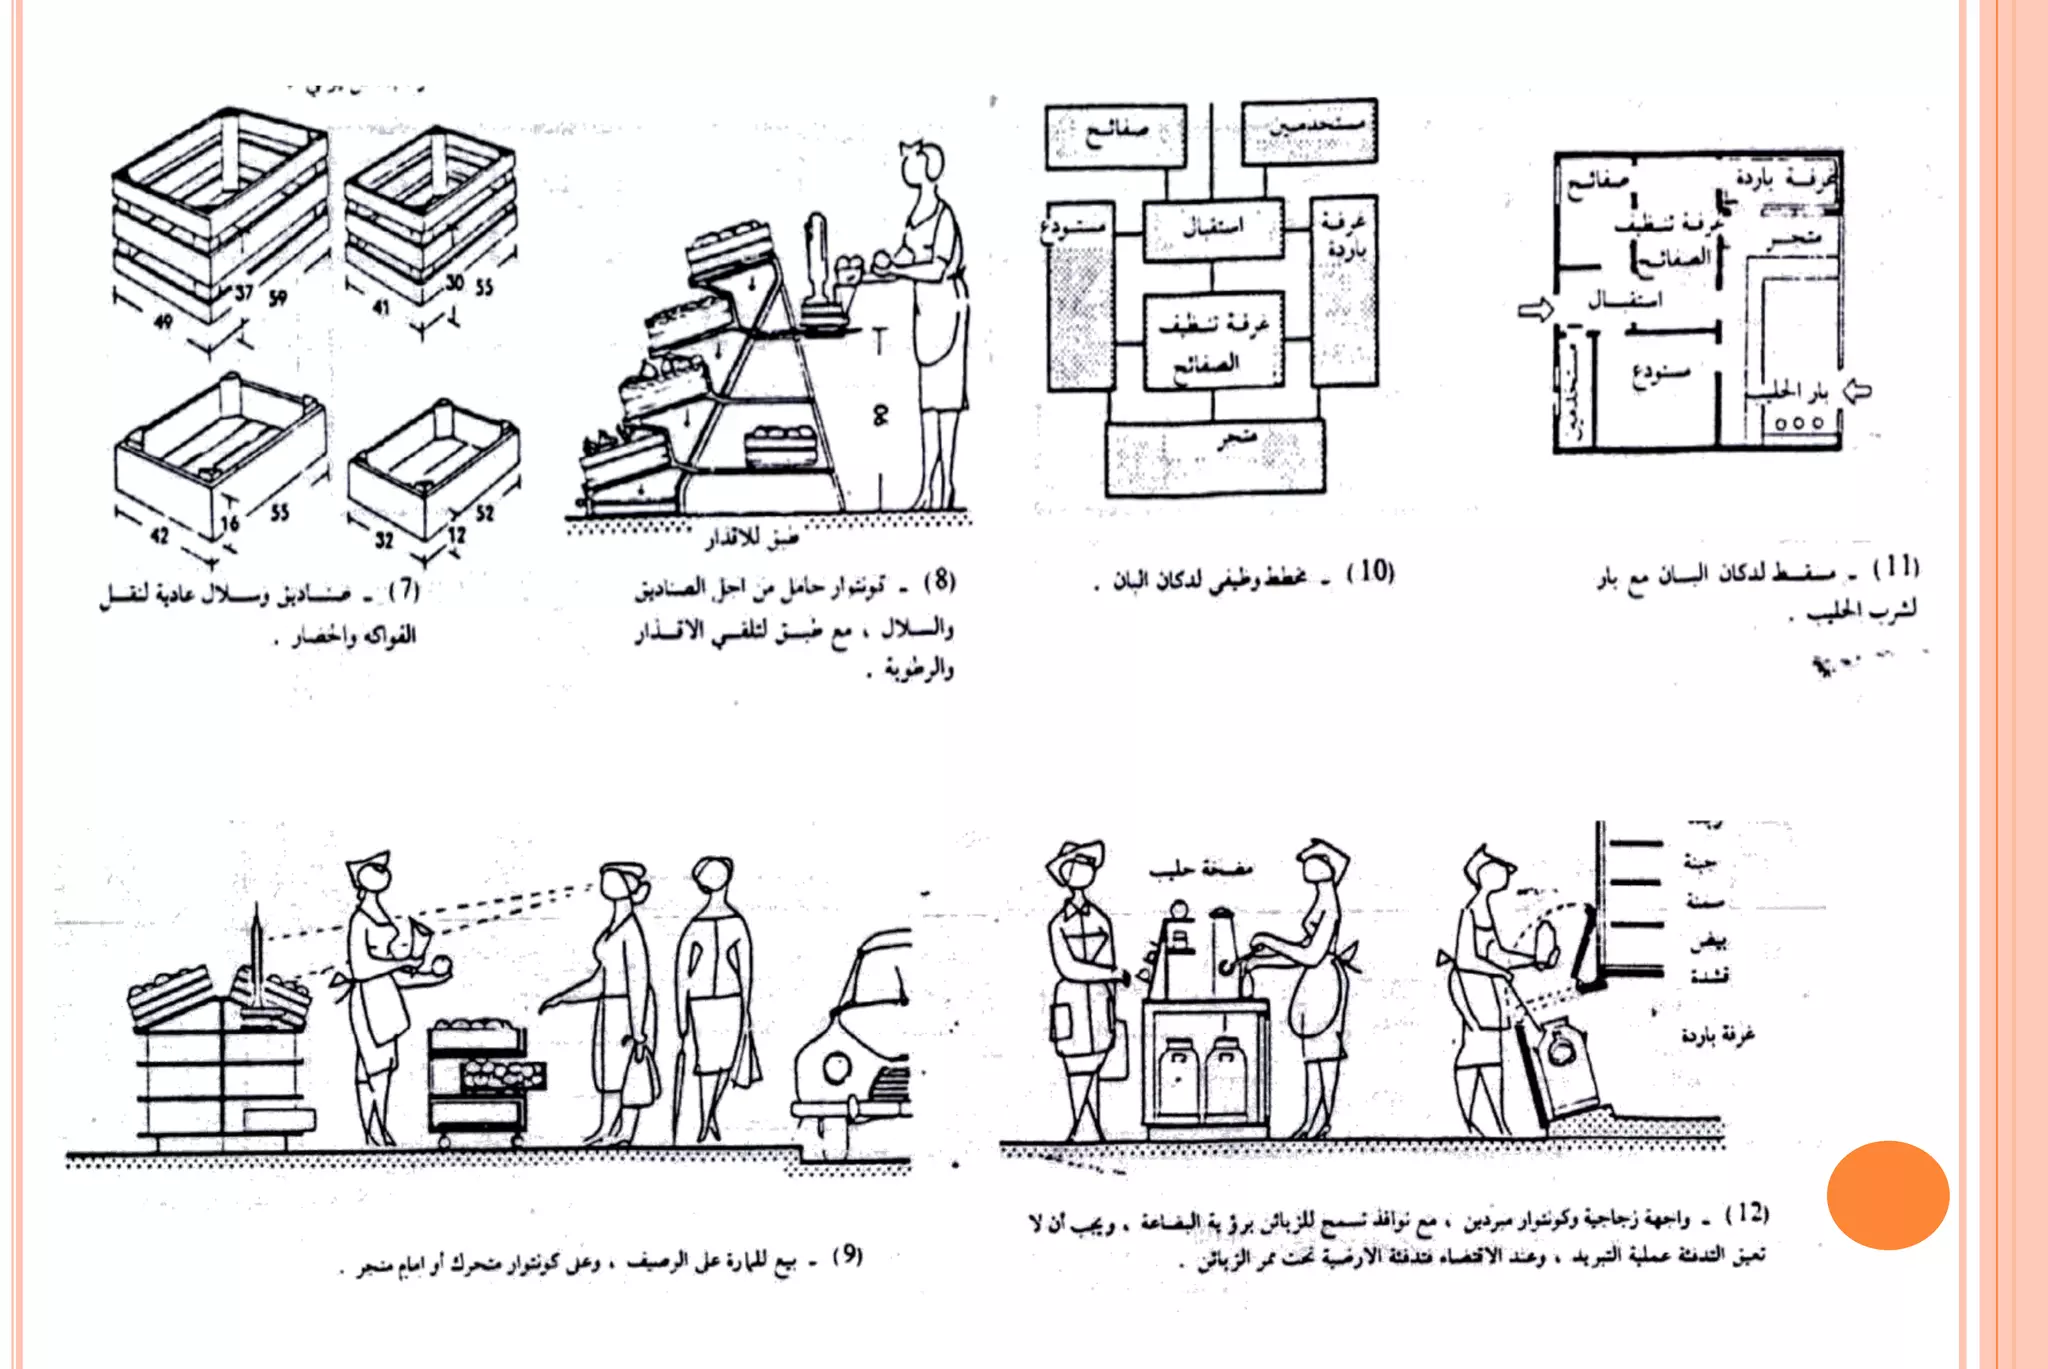 37
59
49
30
55
41
16
55
42
12
52
32
(7) ـ صناديق وسلال عادية لنقل
الفواكه والخضار .
90
طبق للاقذار
(8) ـ كونتوار حامل من اجل الصناديق
والسلال ، مع طبق لتلقي الاقذار
والرطوبة .
مستخدمين
صفائح
غرفة باردة
استقبال
مستودع
غرفة تنظيف
الصفائح
متجر
(10) ـ مخطط وظيفي لدكان البان .
غرفة باردة
صفائح
متجر
غرفة تنظيف
الصفائح
استقبال
مستودع
مستخدمين
بار الحليب
(11) ـ مسقط لدكان البان مع بار
لشرب الحليب .
(9) ـ بيع للمارة على الرصيف ، وعلى كونتوار متحرك أو امام متجر .
مضخة حليب
جبنة
سمنة
بيض
قشدة
غرفة باردة
(12) ـ واجهة زجاجية وكونتوار مبردين ، مع نوافذ تسمح للزبائن برؤية البضاعة ، ويجب أن لا
تعيق التدفئة عملية التبريد ، وعند الاقتضاء فتدفئة الارضية تحت ممر الزبائن .